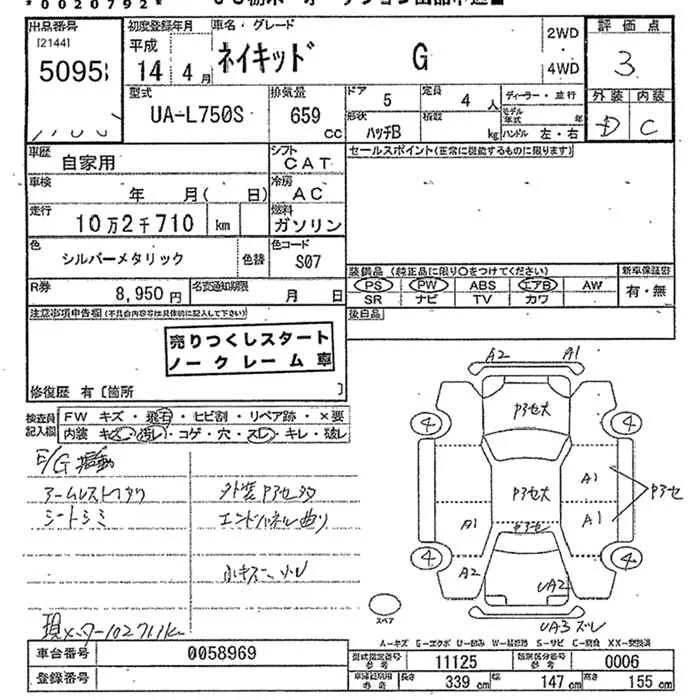 *0020792*
出品番号 初度登録年月 車名・グレード 2WD 評価点
[2144] 平成
5095 14年4月 ネイキッド G 4WD 3
型式 排気量 ドア 5 定員 4人 ディーラー・並行 外装 内装
UA-L750S 659cc 形状 ハッチB 積載 kg モデル年式 年 D C
ハンドル 左・右
車歴 自家用 シフト CAT セールスポイント(正常に機能するものに限ります)
車検 年 月( 日) 冷房 AC
走行 10万2千710 km 燃料 ガソリン
色 シルバーメタリック 色替 色コード S07
装備品 (純正品に限り○をつけてください) 新車保証書
R券 8,950円 名変通知期限 月 日 PS PW ABS エアB AW 有・無
SR ナビ TV カワ
注意事項申告欄(不具合内容等は具体的に記入して下さい) 後日品
売りつくしスタート
ノークレーム車
修復歴 有〔箇所 〕
A2 A1
検査員記入欄 FW キズ・飛石・ヒビ割・リペア跡・×要
内装 キズ・汚れ・コゲ・穴・スレ・キレ・破レ
4 4
E/G
シートシミ エンドパネル曲り
A1 A1
A1
4 4
A2 UA2
スペア
UA3 ズレ
A-キズ G-エクボ U-凹み W-補修跡 S-サビ C-腐食 XX-交換済
車台番号 0058969 型式指定番号 参考 11125 類別区分番号 参考 0006
登録番号 長さ 339cm 幅 147cm 高さ 155cm